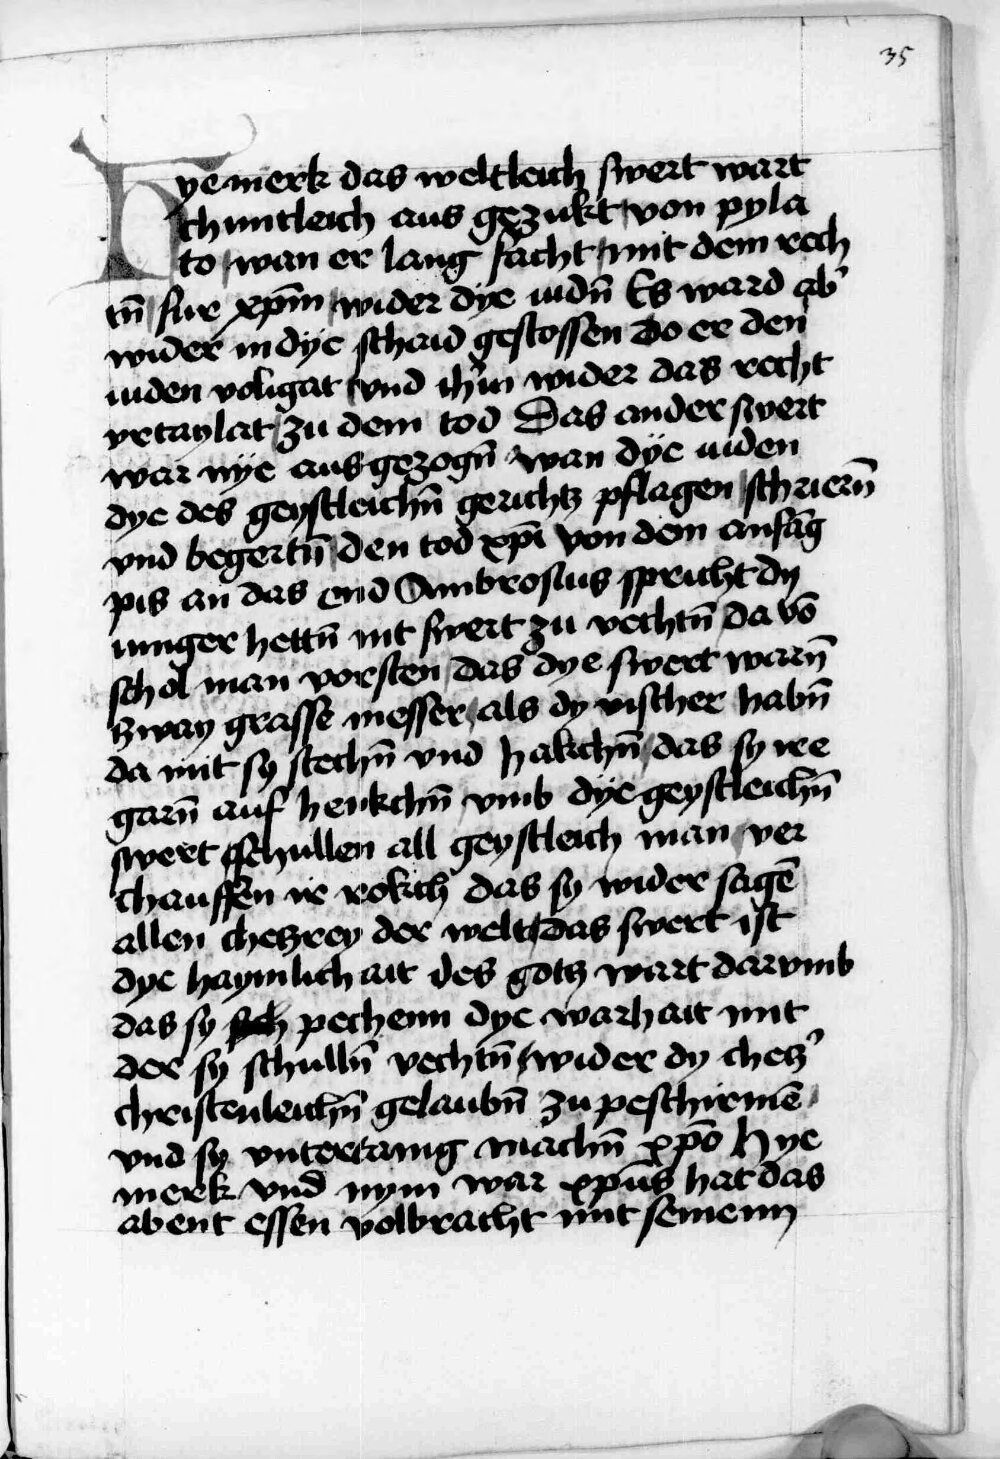 35
Hye merk das weltleich swert wart
chuntleich aus gezukt von pyla
to wan er lang facht mit dem rech
tn̄ fur xp̄m wider dye iudn̄ Es ward ab̛
wider in dye schaid gestossen do er den
iuden voligat vnd ih̄m wider das recht
vrtaylat zu dem tod Das ander swert
war nye aus gezogn̄ wan dye iuden
dye des geystleichn̄ gerichtz pflagen schriern̄
vnd begertn̄ den tod xp̄i von dem anfāg
pis an das end Ambrosius spricht dy
iunger hettn̄ nit swert zu vechtn̄ da vō
schol man vorsten das dye swert warn̄
zway grasse messer als dy vischer habn̄
da mit sy stechn̄ vnd hakchn̄ das sy ire
garn̄ auf henkchn̄ vmb dye geystleichn̄
swert schullen all geystleich man ver
chauffen ir rokch das sy wider sagē
allen chetzrey der welt das swert ist
dye haymlichait des gotz wart darvmb
das sy pechenn dye warhait mit
der sy schulln̄ vechtn̄ wider dy chetz̛
christenleichn̄ gelaubn̄ zu peschirmē
vnd sy vntertanig machn̄ xp̄o Hye
merk vnd nym war xp̄us hat das
abent essen volbracht mit seinenn